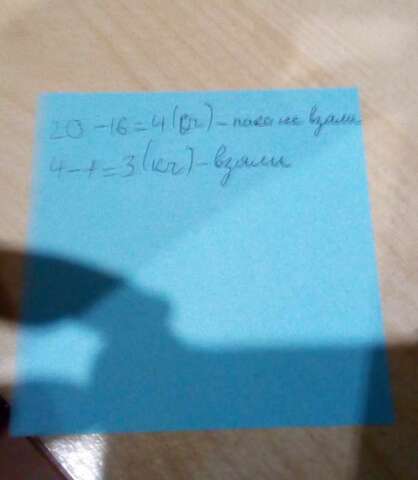 20-16=4(кг)-пока не взяли
4-1=3(кг)-взяли